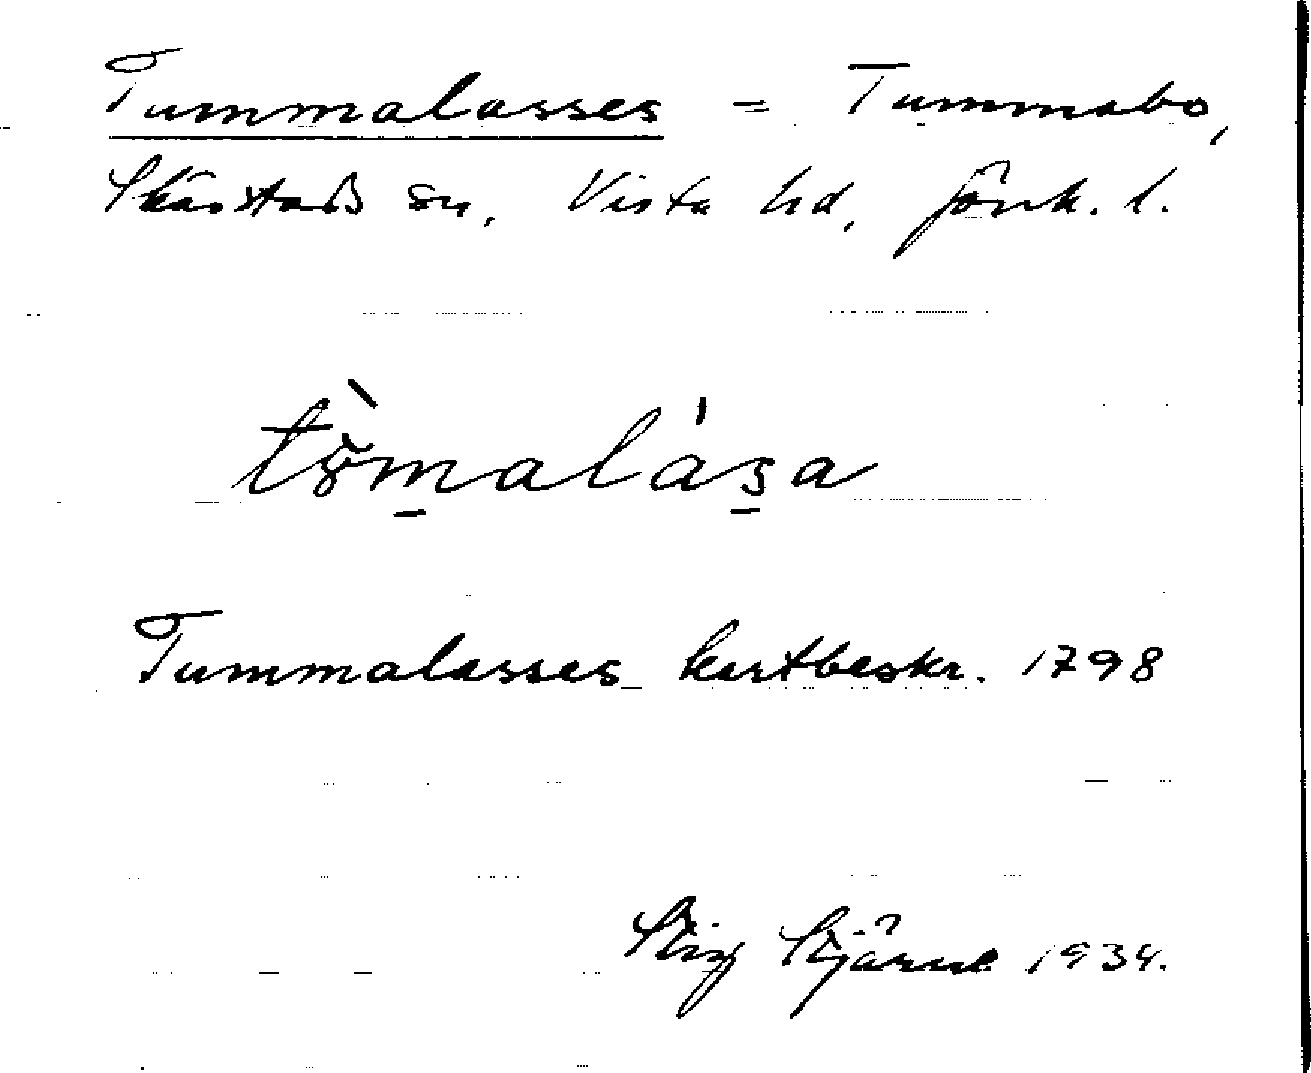 Tummalasses = Tummabo,
Skärstads sn, Vista hd, Jönk. l.
tòmalása
Tummalasses kartbeskr. 1798
Stig Stjärne 1934.